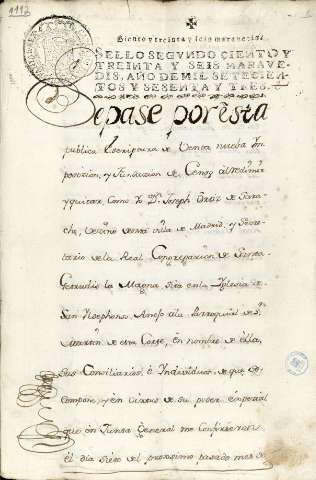 1112
Ciento y treinta y seis maravedis.
SELLO SEGVNDO, CIENTO Y
TREINTA Y SEIS MARAVE-
DIS, AÑO DE MIL SETECIEN-
TOS Y SESENTA Y TRES.
Sepase por esta
publica Escriptura de Venta nueba Ym
posicion, y Fundacion de Censo al redimir
y quitar, Como Yo Dn. Joseph Ortiz de
Vecino de esta villa de Madrid, y Secre
tario de la Real Congregacion de Santa
Gertrudis la Magna sita en la Yglesia de
San Yldephonso, Anejo a la Parroquial de Sn.
Martin de esta Corte, en nombre de ella,
sus Conciliarios, è Yndividuos, de que se
compone, y en virtud de su poder especial
que en Junta General me confirieron
el dia siete del proximo pasado mes de